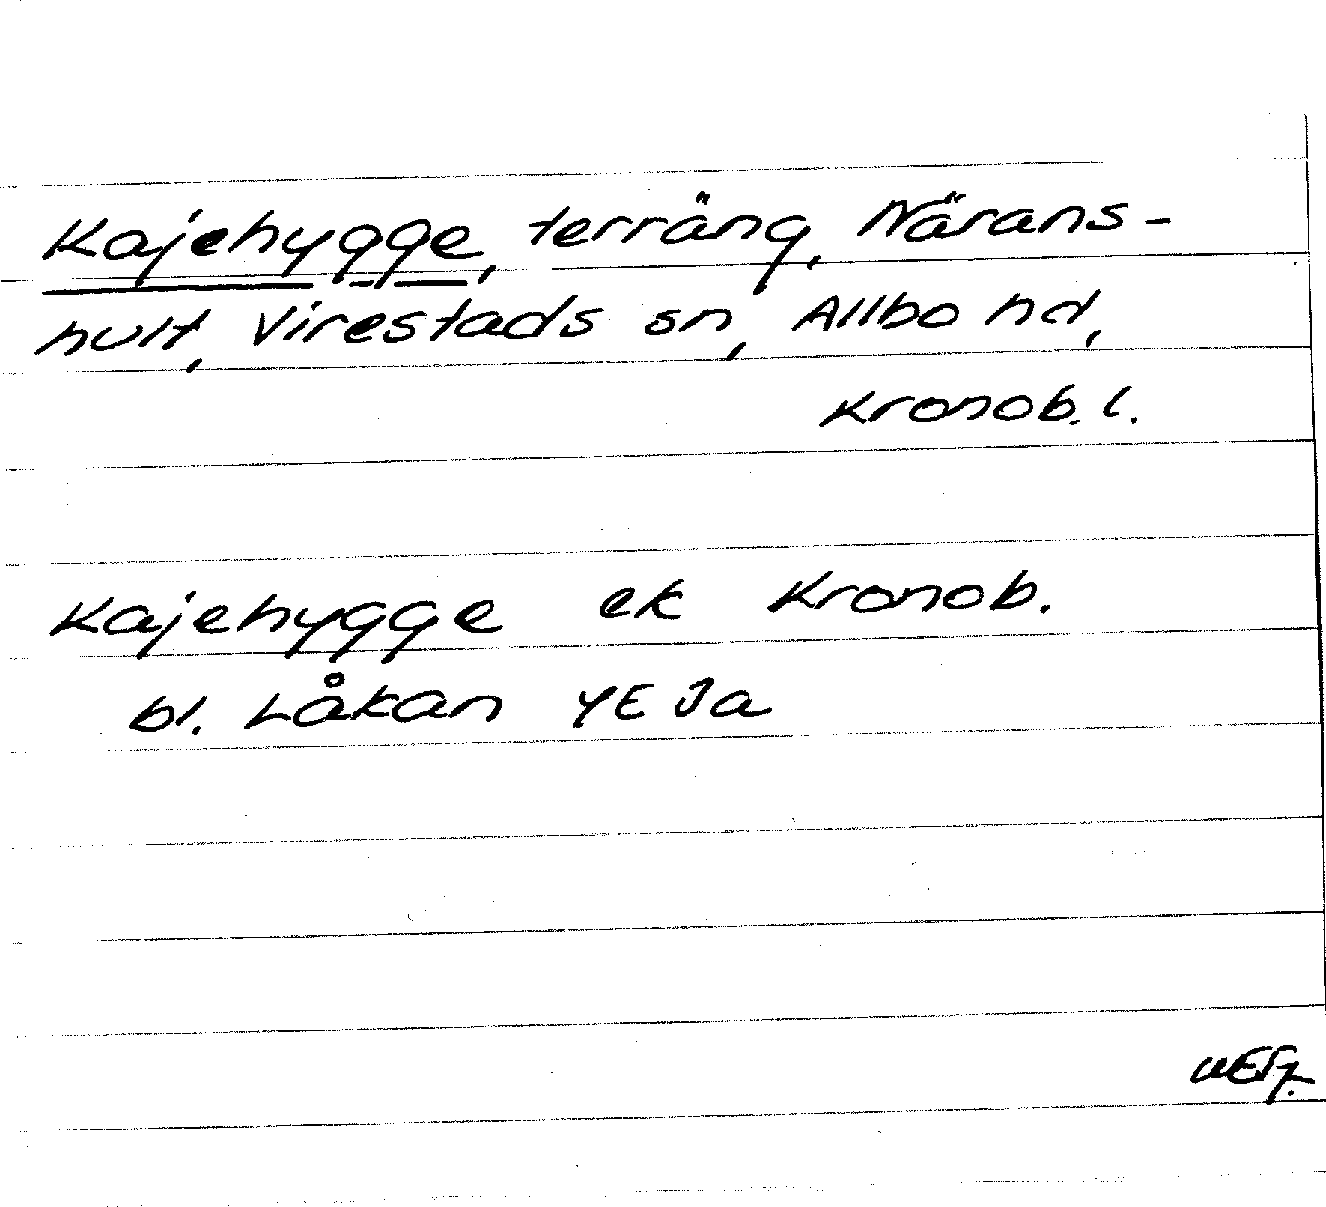 Kajehygge, terräng, Närans-
hult, Virestads sn, Allbo hd,
Kronob. l.
Kajehygge ek Kronob.
bl. Låkan 4E Ja